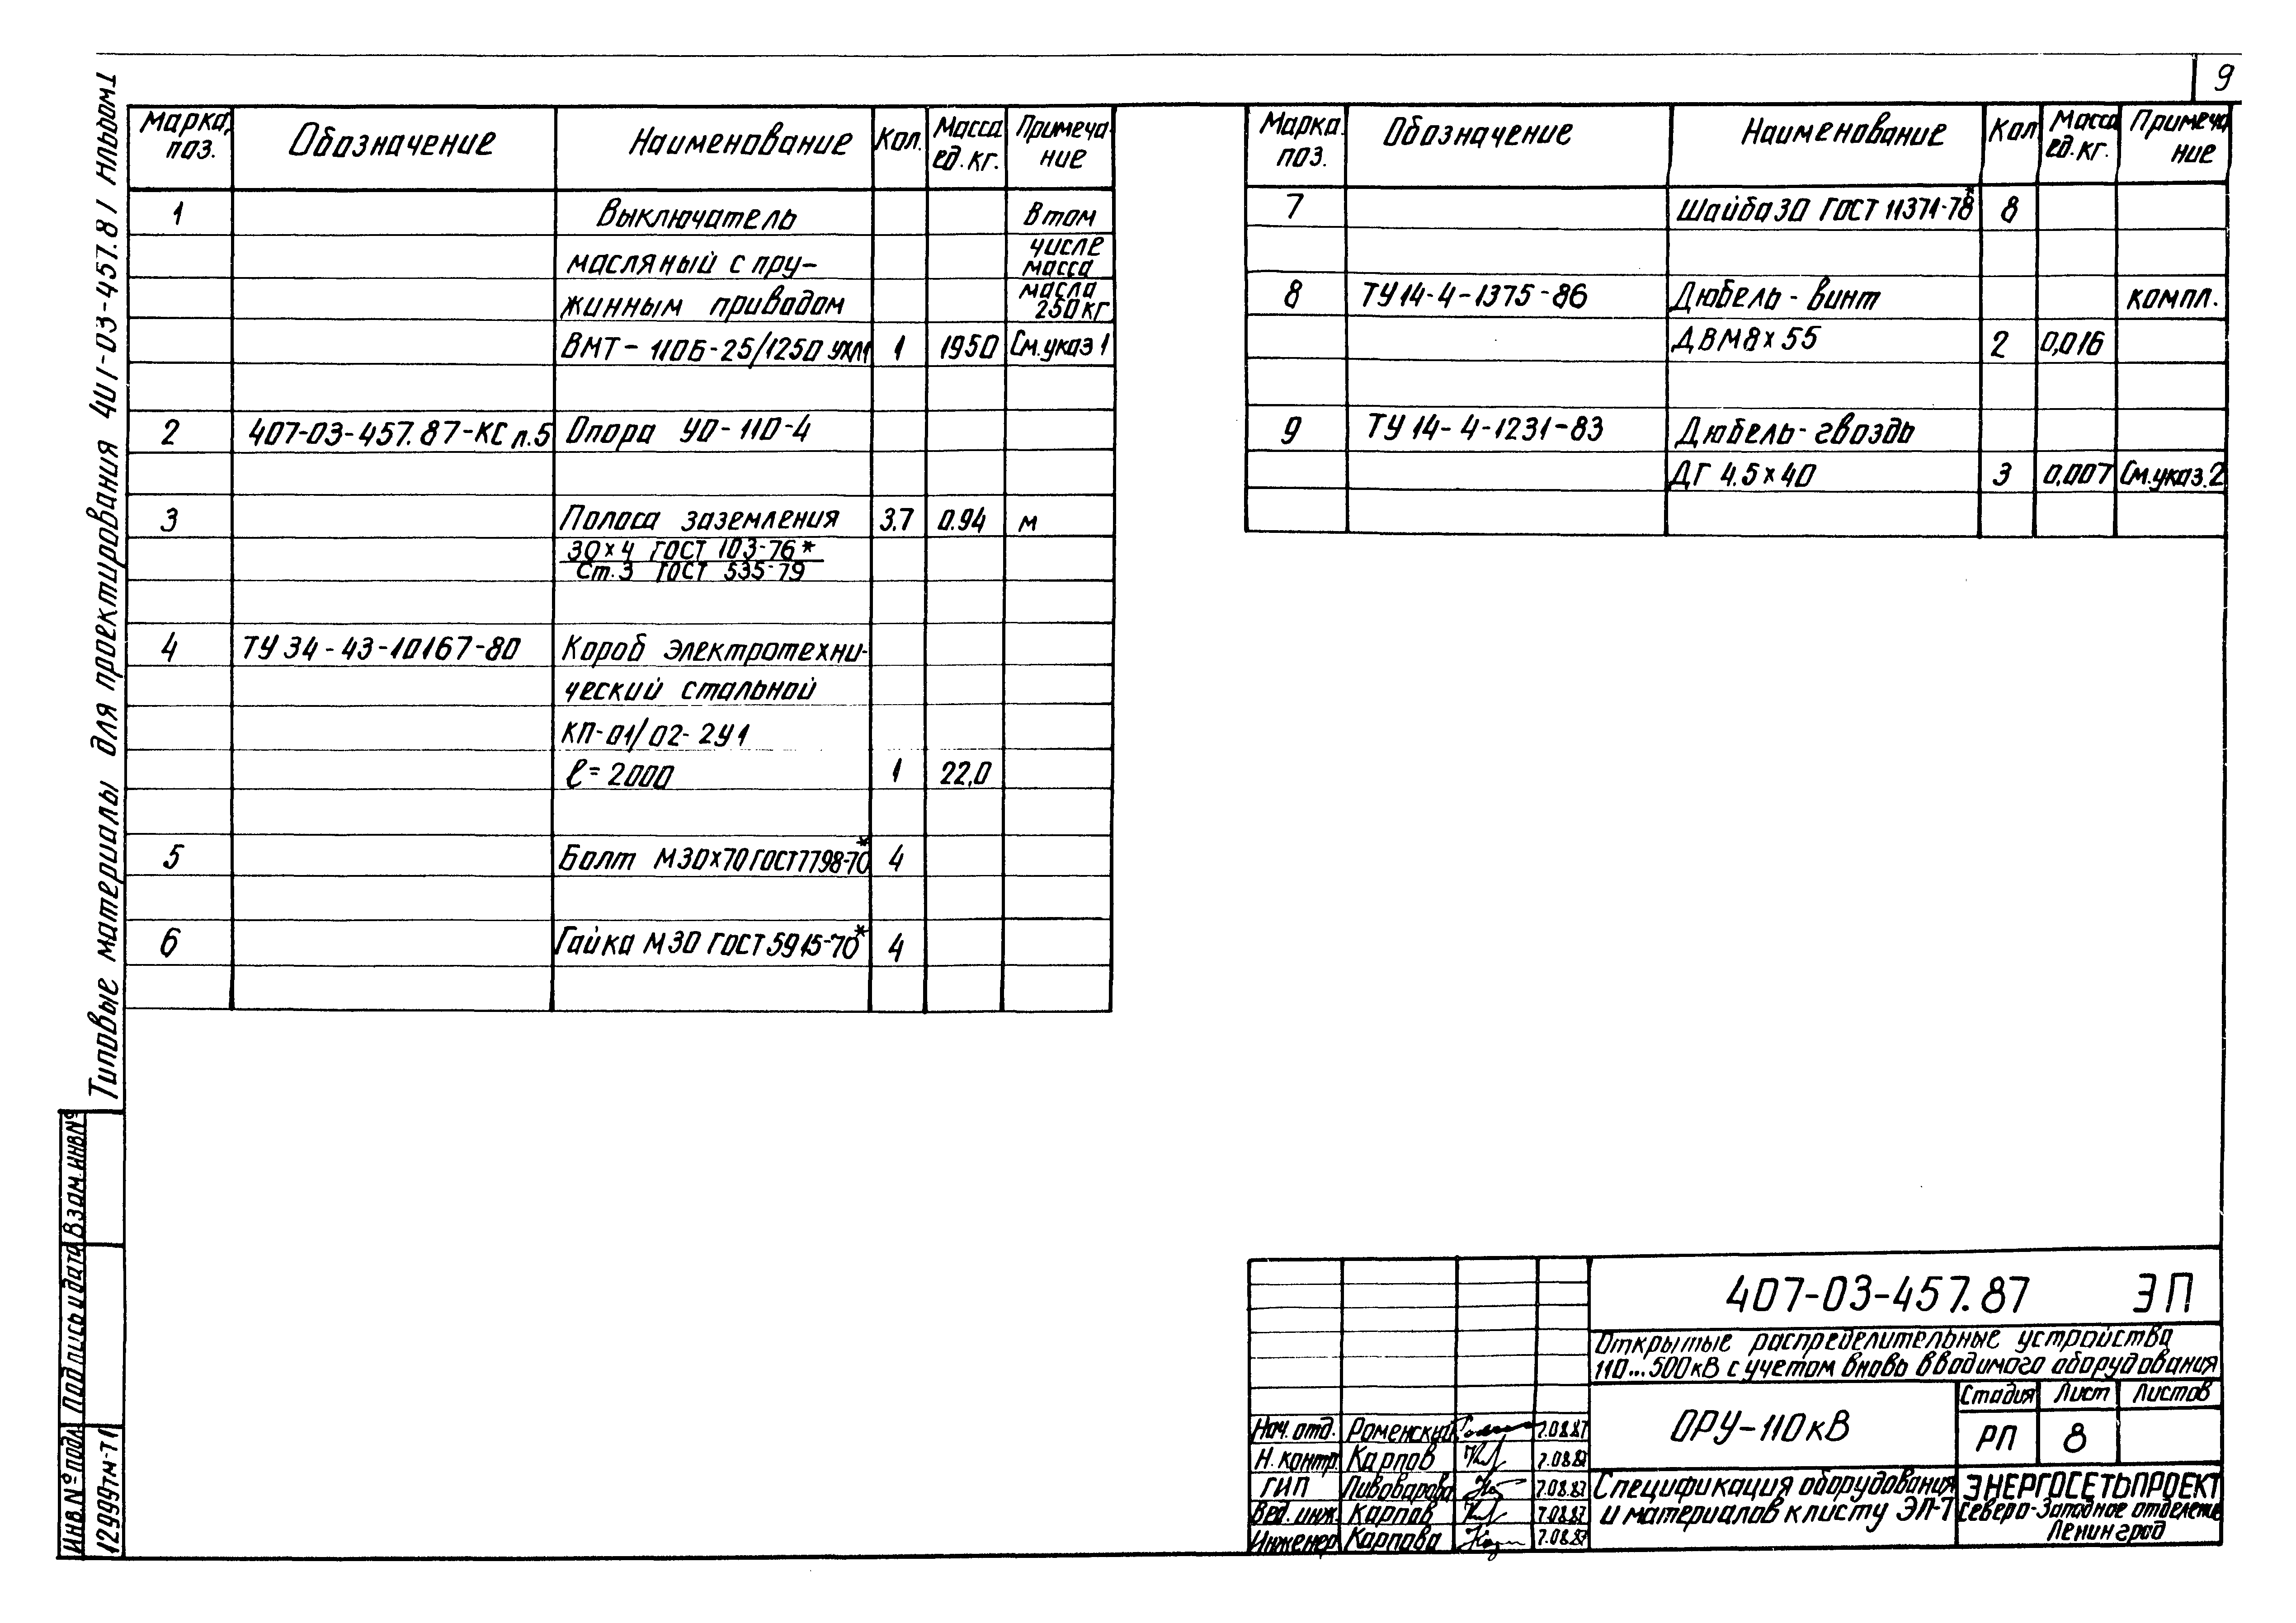 9
Типовые материалы для проектирования 407-03-457.87 Альбом 1
Марка, поз. Обозначение Наименование Кол. Масса ед. кг. Примеча ние
1 Выключатель В том
масляный с пру- числе масса
жинным приводом масла 250 кг
ВМТ-110Б-25/1250 УХЛ1 1 1950 См. указ 1
2 407-03-457.87-КС л.5 Опора УО-110-4
3 Полоса заземления 3.7 0.94 м
30×4 ГОСТ 103-76*
Ст.3 ГОСТ 535-79
4 ТУ 34-43-10167-80 Короб электротехни-
ческий стальной
КП-01/02-2У1
ℓ=2000 1 22,0
5 Болт М30×70 ГОСТ 7798-70* 4
6 Гайка М30 ГОСТ 5915-70* 4
Марка. поз. Обозначение Наименование Кол Масса ед. кг. Примеча ние
7 Шайба 30 ГОСТ 11371-78* 8
8 ТУ 14-4-1375-86 Дюбель-винт компл.
ДВМ8×55 2 0,016
9 ТУ 14-4-1231-83 Дюбель-гвоздь
ДГ 4.5×40 3 0,007 См. указ. 2
407-03-457.87 ЭП
Открытые распределительные устройства
110...500кВ с учетом вновь вводимого оборудования
ОРУ-110кВ
Стадия Лист Листов
РП 8
Нач. отд. Роменский 7.08.87
Н. контр. Карпов 7.08.87
ГИП Пивоварова 7.08.87
Вед. инж. Карпов 7.08.87
Инженер Карпова 7.08.87
Спецификация оборудования
и материалов к листу ЭП-7
ЭНЕРГОСЕТЬПРОЕКТ
Северо-Западное отделение
Ленинград
Взам. инв №
Подпись и дата
Инв. № подл
12999тм-т1